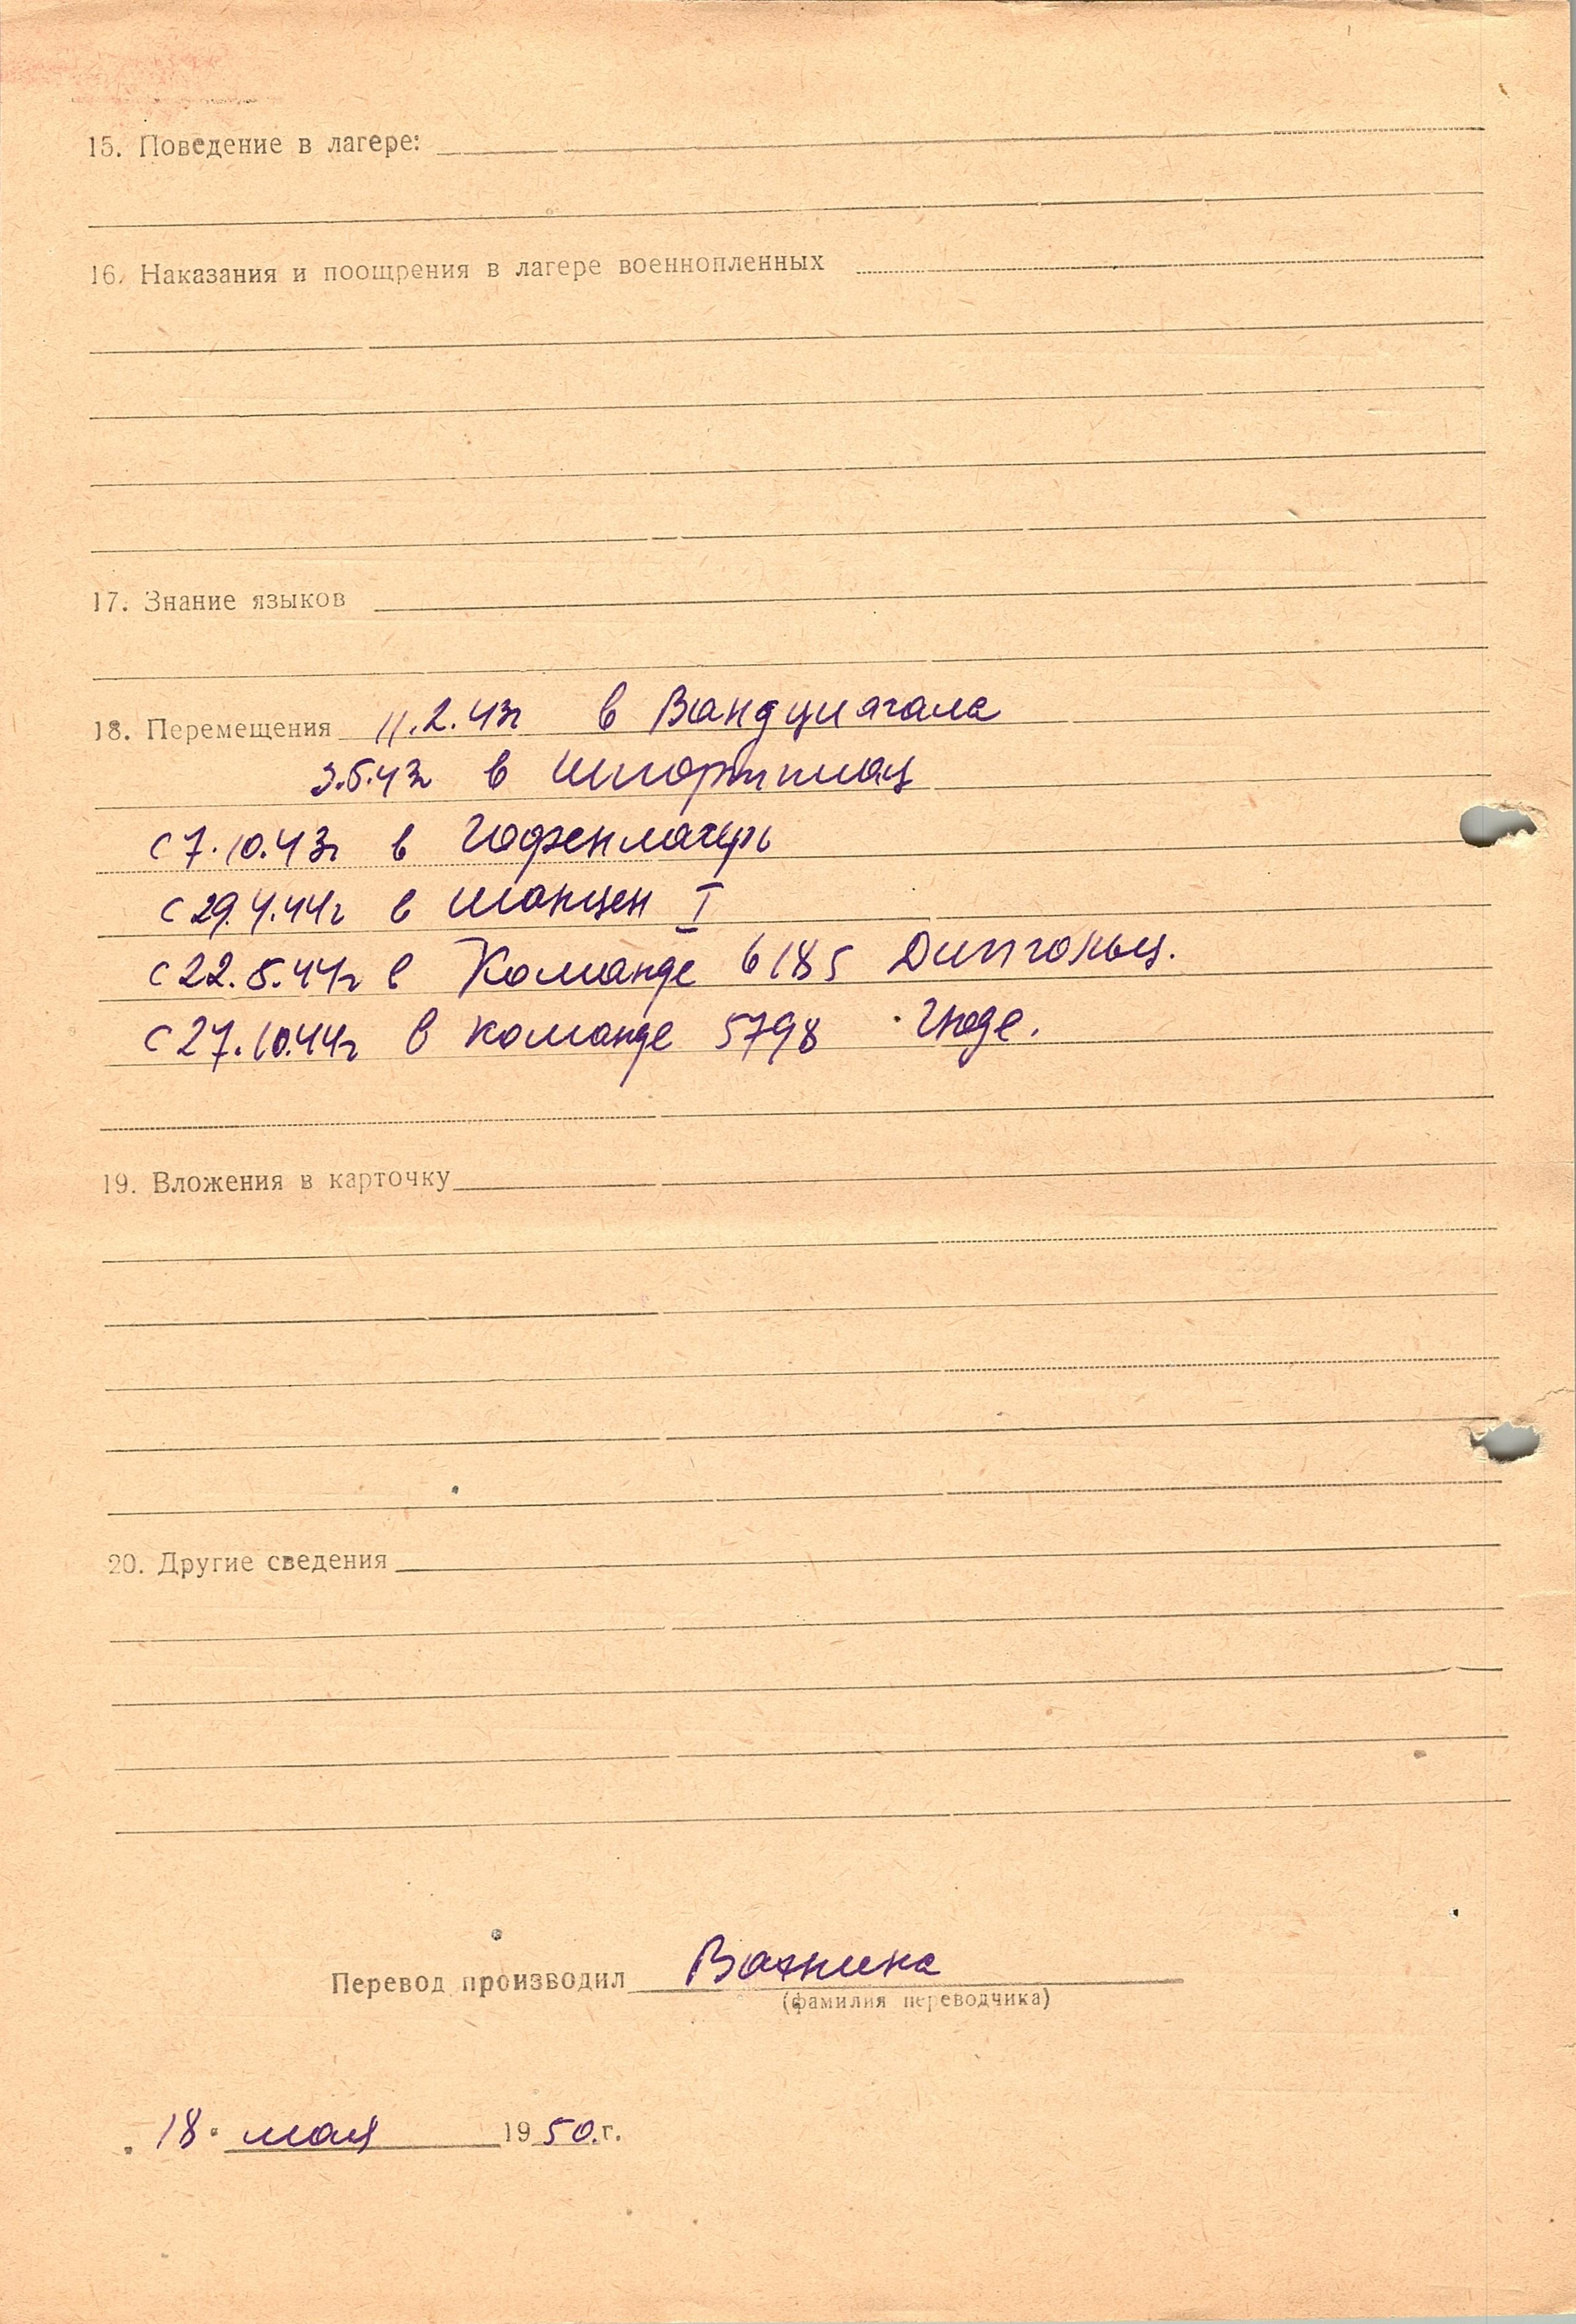 15. Поведение в лагере:
16. Наказания и поощрения в лагере военнопленных
17. Знание языков
18. Перемещения 11.2.43г в Вандциагала
3.5.43г в Шпортплац
С 7.10.43г в Гафенлагерь
С 29.4.44г в Шанцен I
С 22.5.44г в Команде 6185 Дипгольц.
С 27.10.44г в команде 5798
19. Вложения в карточку
20. Другие сведения
Перевод производил
(фамилия переводчика)
18. мая 1950.г.